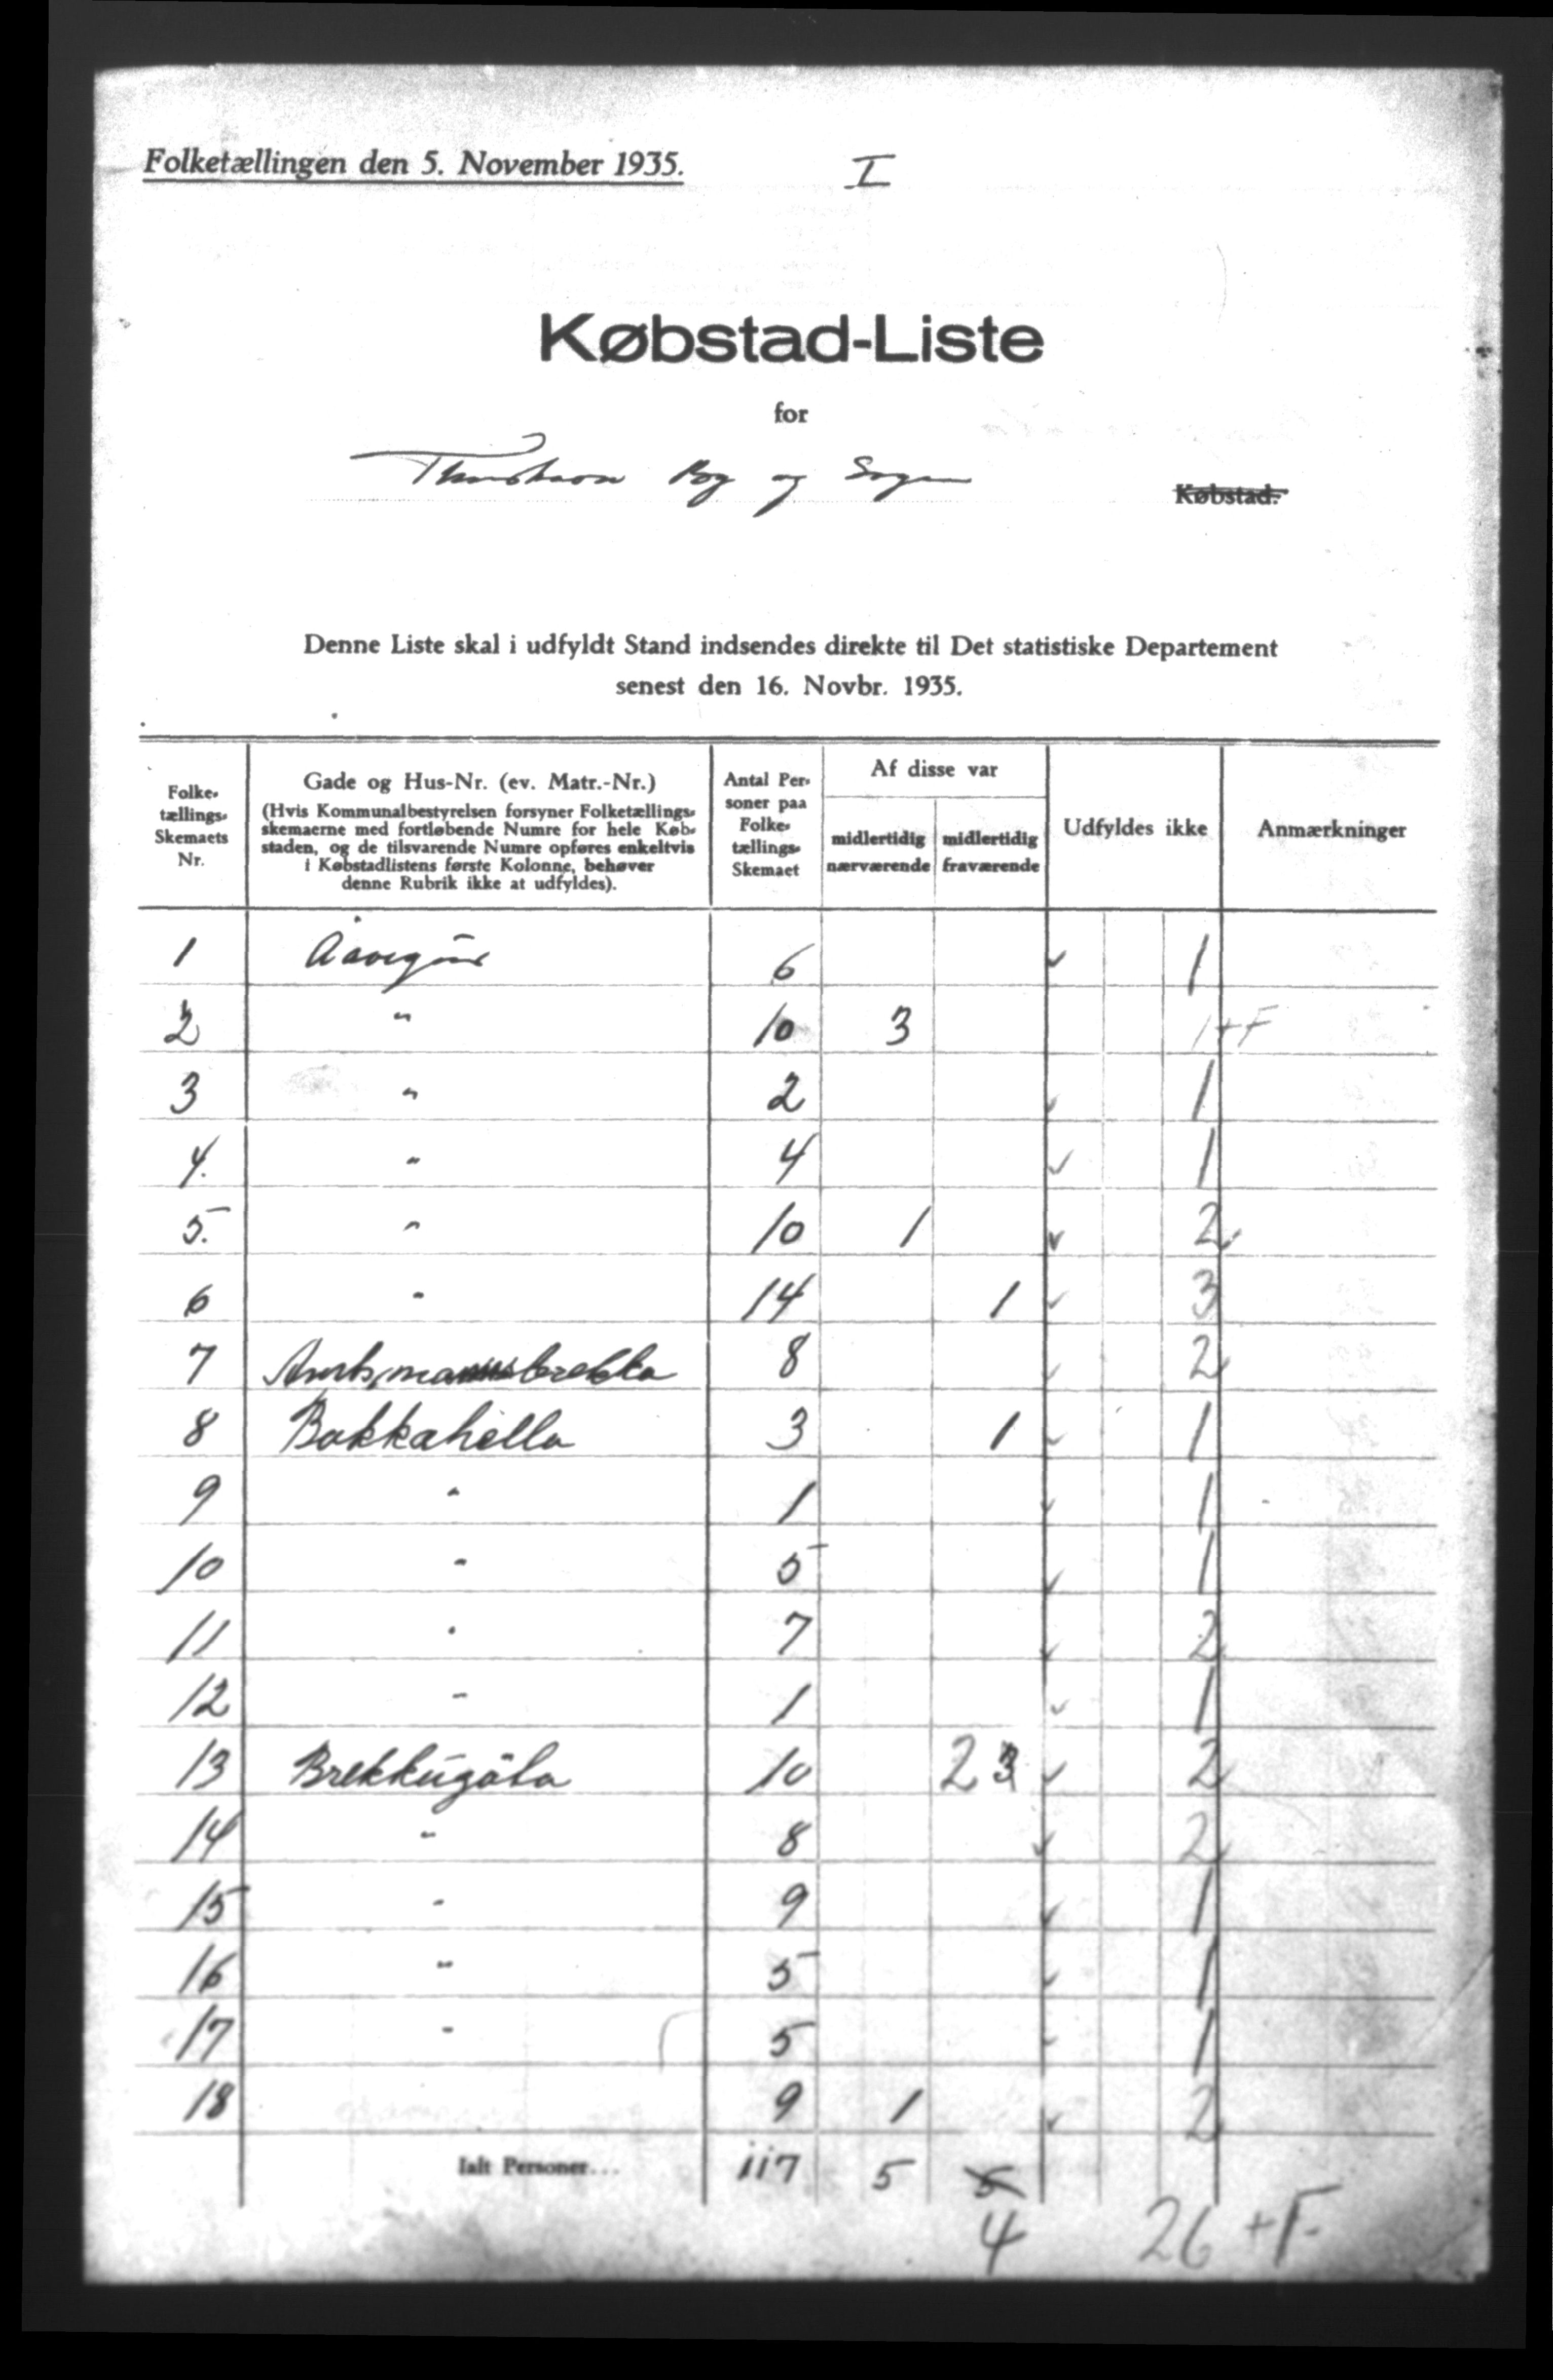 Folketællingen den 5. November 1935.
I
Købstad-Liste
for
Thorshavn By og Sogn
Købstad.
Denne Liste skal i udfyldt Stand indsendes direkte til Det statistiske Departement
senest den 16. Novbr. 1935.
Folke-
tællings-
Skemaets
Nr.
Gade og Hus-Nr. (ev. Matr.-Nr.)
(Hvis Kommunalbestyrelsen forsyner Folketællings-
skemaerne med fortløbende Numre for hele Køb-
staden, og de tilsvarende Numre opføres enkeltvis
i Købstadlistens første Kolonne, behøver
denne Rubrik ikke at udfyldes).
Antal Per-
soner paa
Folke-
tællings-
Skemaet
Af disse var
midlertidig
nærværende
midlertidig
fraværende
Udfyldes ikke
Anmærkninger
1 6 ✓ 1
2 " 10 3 1+F
3 " 2 ✓ 1
4. " 4 ✓ 1
5. " 10 1 ✓ 2
6 " 14 1 ✓ 3
7 Amtsmansbrekka 8 ✓ 2
8 Bakkahella 3 1 ✓ 1
9 " 1 ✓ 1
10 " 5 ✓ 1
11 " 7 ✓ 2
12 " 1 ✓ 1
13 Brekkugöta 10 2 3 ✓ 2
14 " 8 ✓ 2
15 " 9 ✓ 1
16 " 5 ✓ 1
17 " 5 ✓ 1
18 9 1 ✓ 2
Ialt Personer... 117 5 5
4 26 +F.